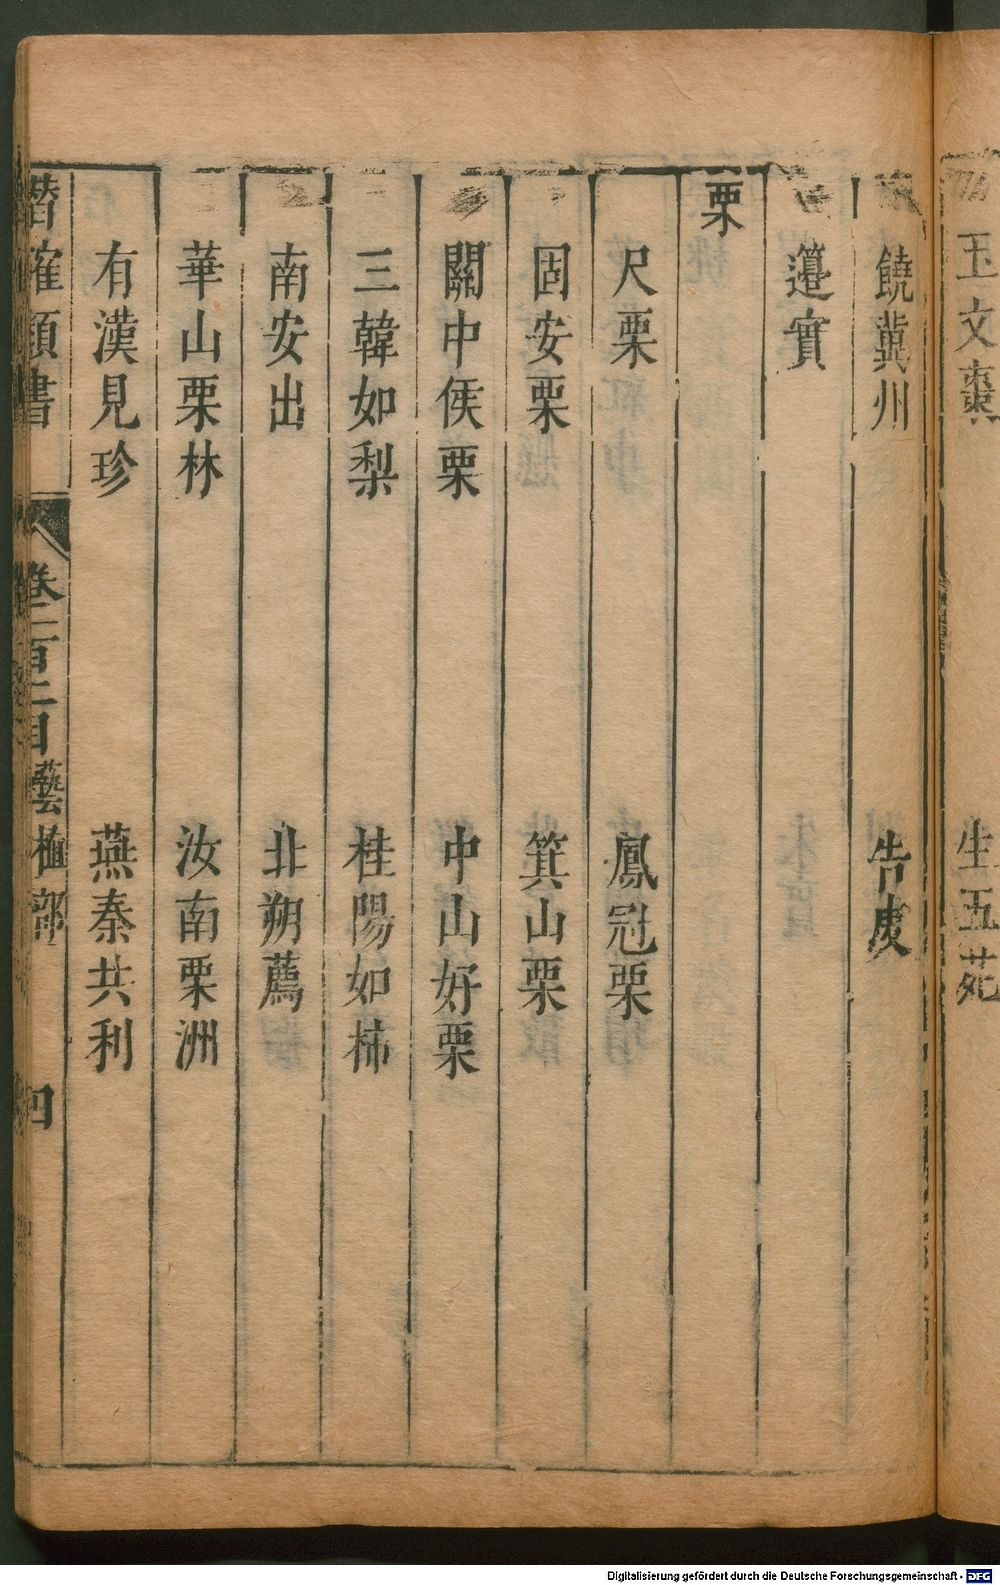 玉文棗　生五苑
饒冀州　告虔
籩實
栗
尺栗　鳳冠栗
固安栗　箕山栗
關中侯栗　中山好栗
三韓如梨　桂陽如柿
南安出　北朔薦
華山栗林　汝南栗洲
有漢見珍　燕秦共利
潛確類書　卷一百二目　藝植部　四
Digitalisierung gefördert durch die Deutsche Forschungsgemeinschaft - DFG